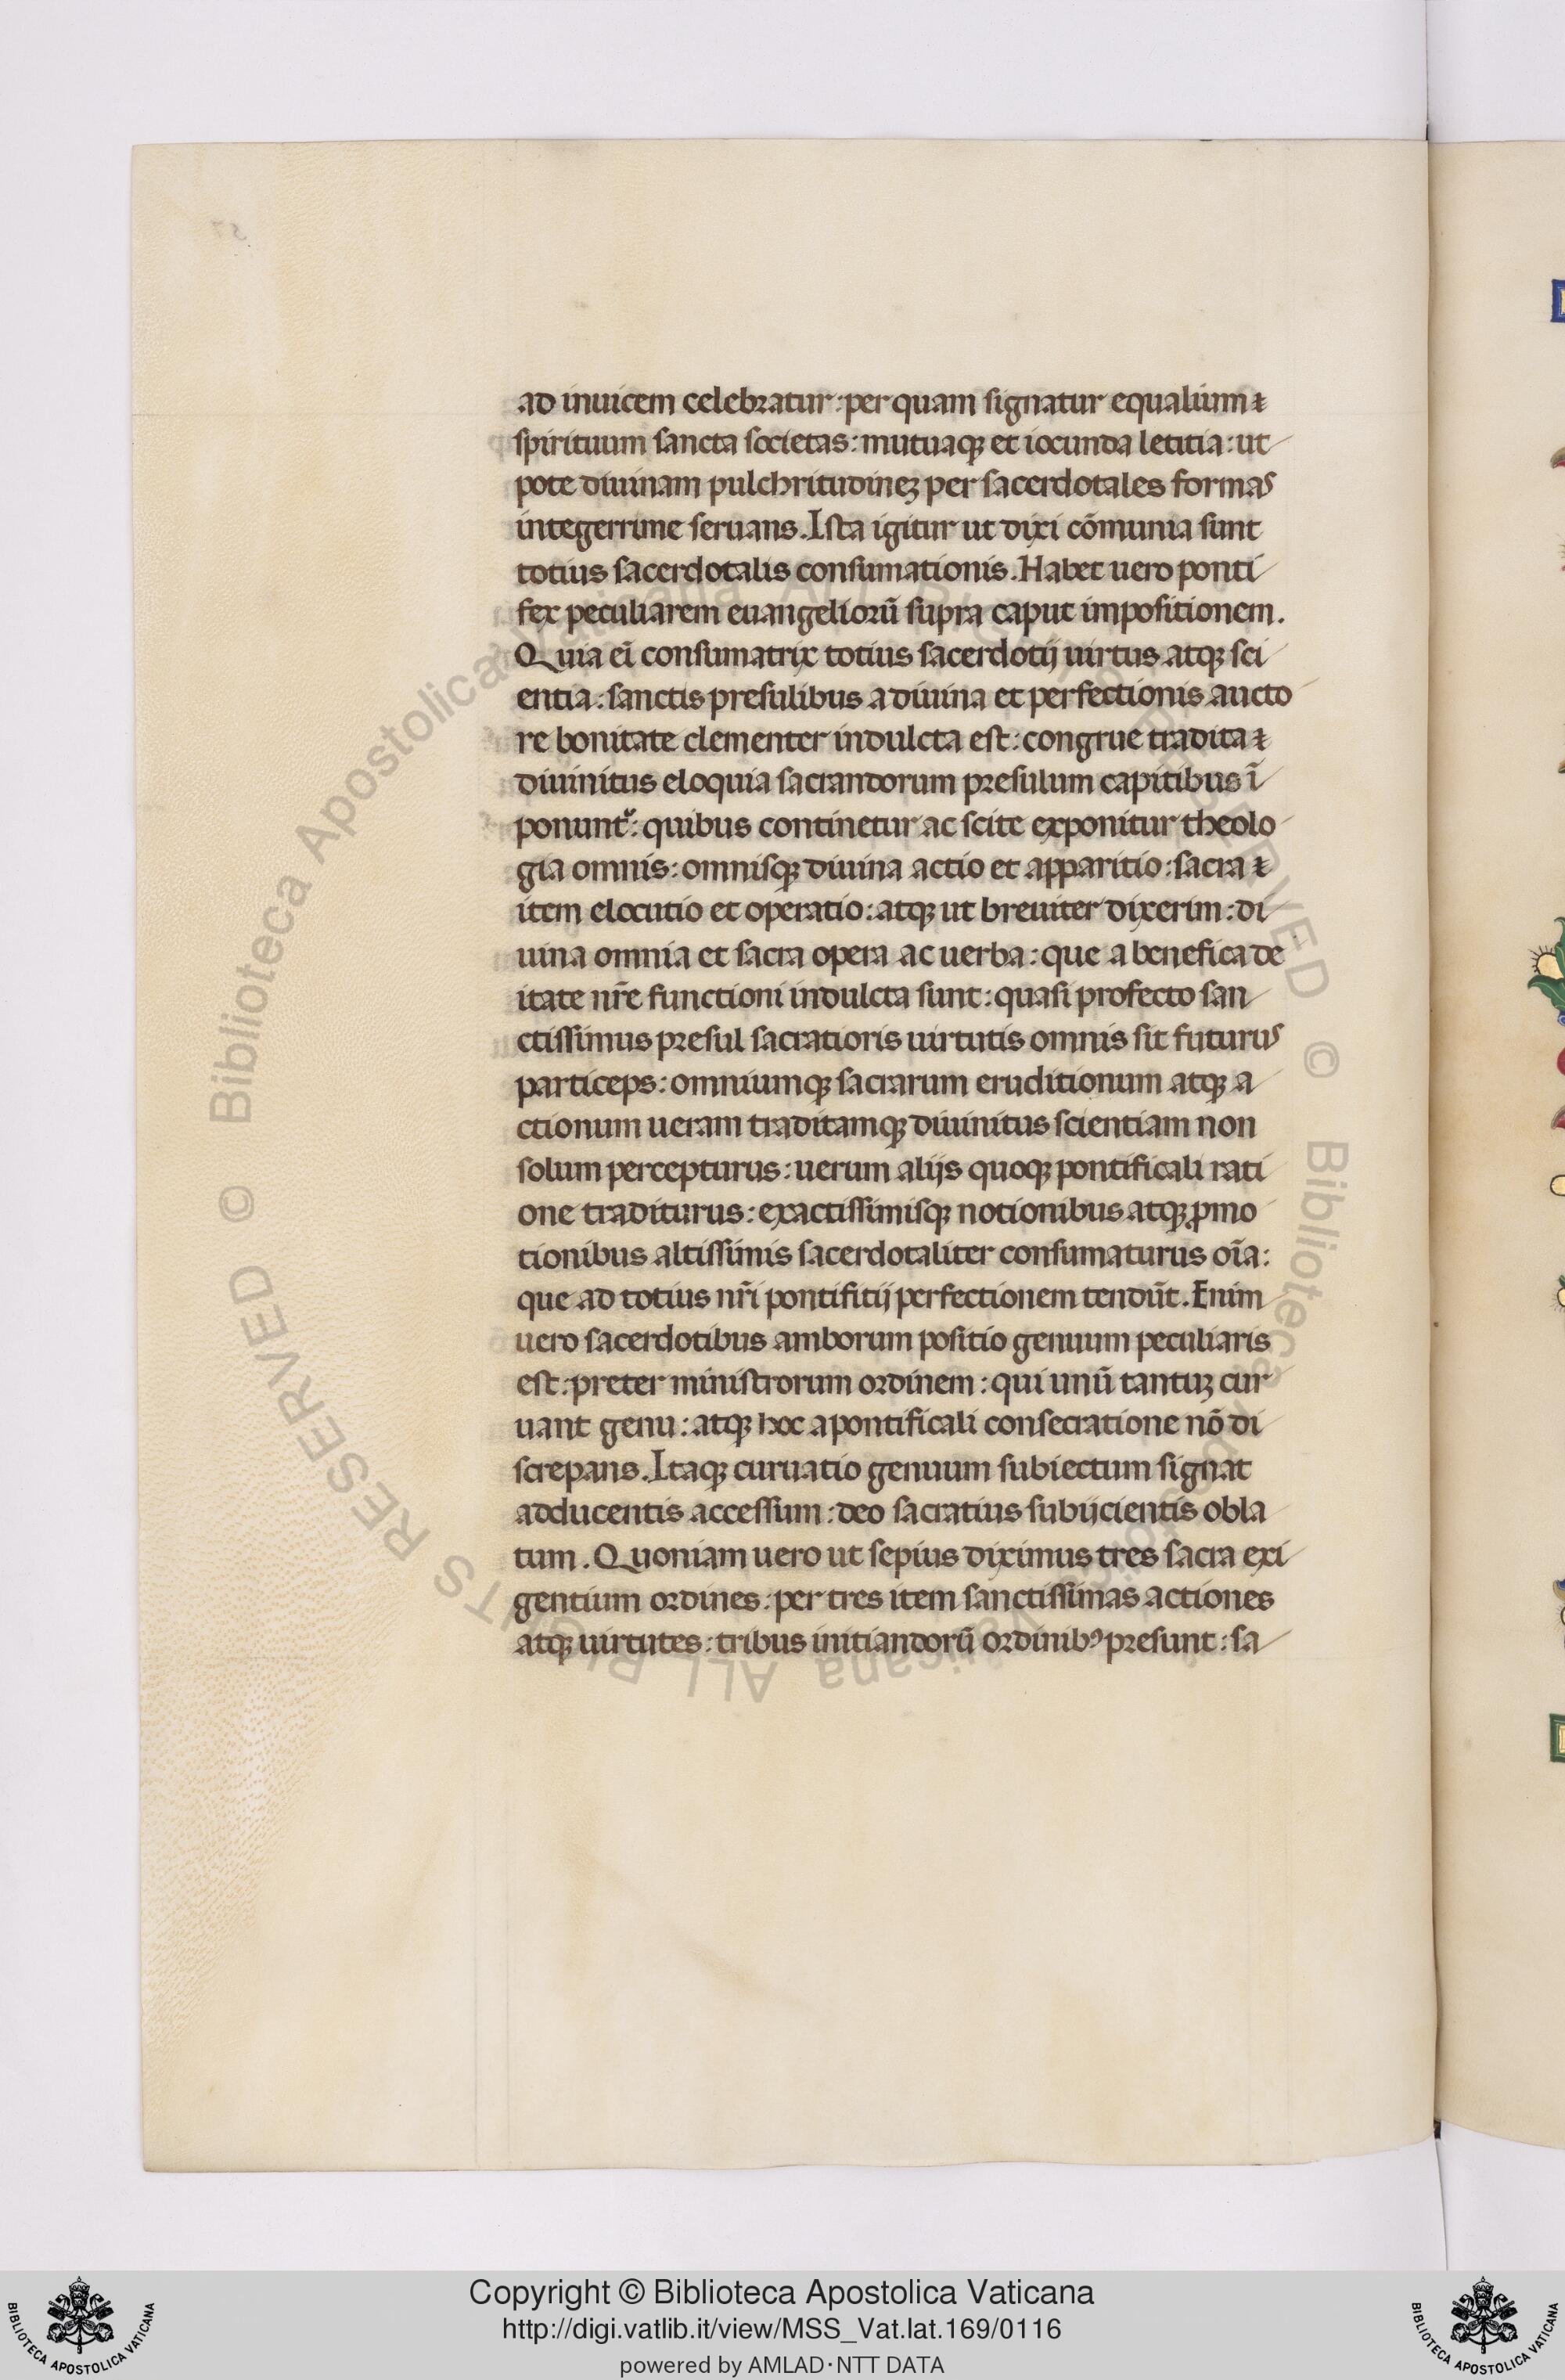 ad inuicem celebratur: per quam signatur equalium ⁊
spirituum sancta societas: mutuaqꝫ et iocunda letitia: ut
pote diuinam pulchritudineꝫ per sacerdotales formas
integerrime seruans. Ista igitur ut dixi cōmunia sunt
totius sacerdotalis consumationis. Habet uero ponti
fex peculiarem euangeliorū supra caput impositionem.
Quia ei̅ consumatrix totius sacerdotij uirtus atqꝫ sci
entia: sanctis presulibus a diuina et perfectionis aucto
re bonitate clementer indulcta est: congrue tradita ⁊
diuinitus eloquia sacrandorum presulum capitibus ī
ponunt᷑: quibus continetur ac scite exponitur theolo
gia omnis: omnisqꝫ diuina actio et apparitio: sacra ⁊
item elocutio et operatio: atqꝫ ut breuiter dixerim: di
uina omnia et sacra opera ac uerba: que a benefica de
itate nr̄e functioni indulcta sunt: quasi profecto san
ctissimus presul sacratioris uirtutis omnis sit futurus
particeps: omniumqꝫ sacrarum eruditionum atqꝫ a
ctionum ueram traditamqꝫ diuinitus scientiam non
solum percepturus: uerum alijs quoqꝫ pontificali rati
one traditurus: exactissimisqꝫ notionibus atqꝫ ꝓmo
tionibus altissimis sacerdotaliter consumaturus oīa:
que ad totius nr̄i pontifitij perfectionem tendūt. Enim
uero sacerdotibus amborum positio genuum peculiaris
est: preter ministrorum ordinem: qui unū tantuꝫ cur
uant genu: atqꝫ hoc a pontificali consecratione nō di
screpans. Itaqꝫ curuatio genuum subiectum signat
adducentis accessum: deo sacratius subijcientis obla
tum. Quoniam uero ut sepius diximus tres sacra exi
gentium ordines: per tres item sanctissimas actiones
atqꝫ uirtutes: tribus initiandorū ordinibꝰ presunt: sa
© Biblioteca Apostolica Vaticana ALL RIGHTS RESERVED © Biblioteca Apostolica Vaticana ALL RIGHTS RESERVED
Copyright © Biblioteca Apostolica Vaticana
http://digi.vatlib.it/view/MSS_Vat.lat.169/0116
powered by AMLAD·NTT DATA
BIBLIOTECA APOSTOLICA VATICANA
BIBLIOTECA APOSTOLICA VATICANA